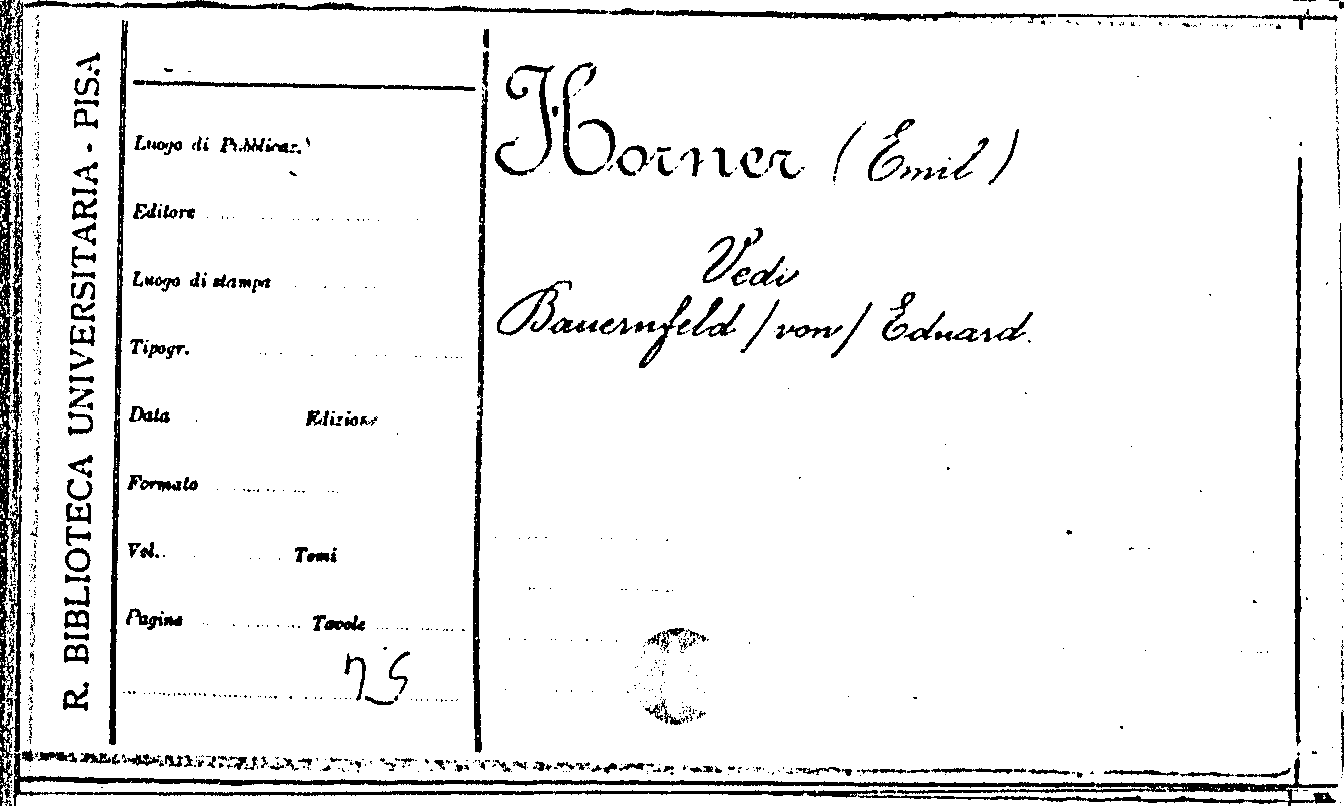 R. BIBLIOTECA UNIVERSITARIA - PISA
Luogo di Pubblicaz.
Editore
Luogo di stampa
Tipogr.
Data Edizione
Formato
Vol. Tomi
Pagine Tavole
Horner (Emil)
Vedi
Bauernfeld /von/ Eduard.